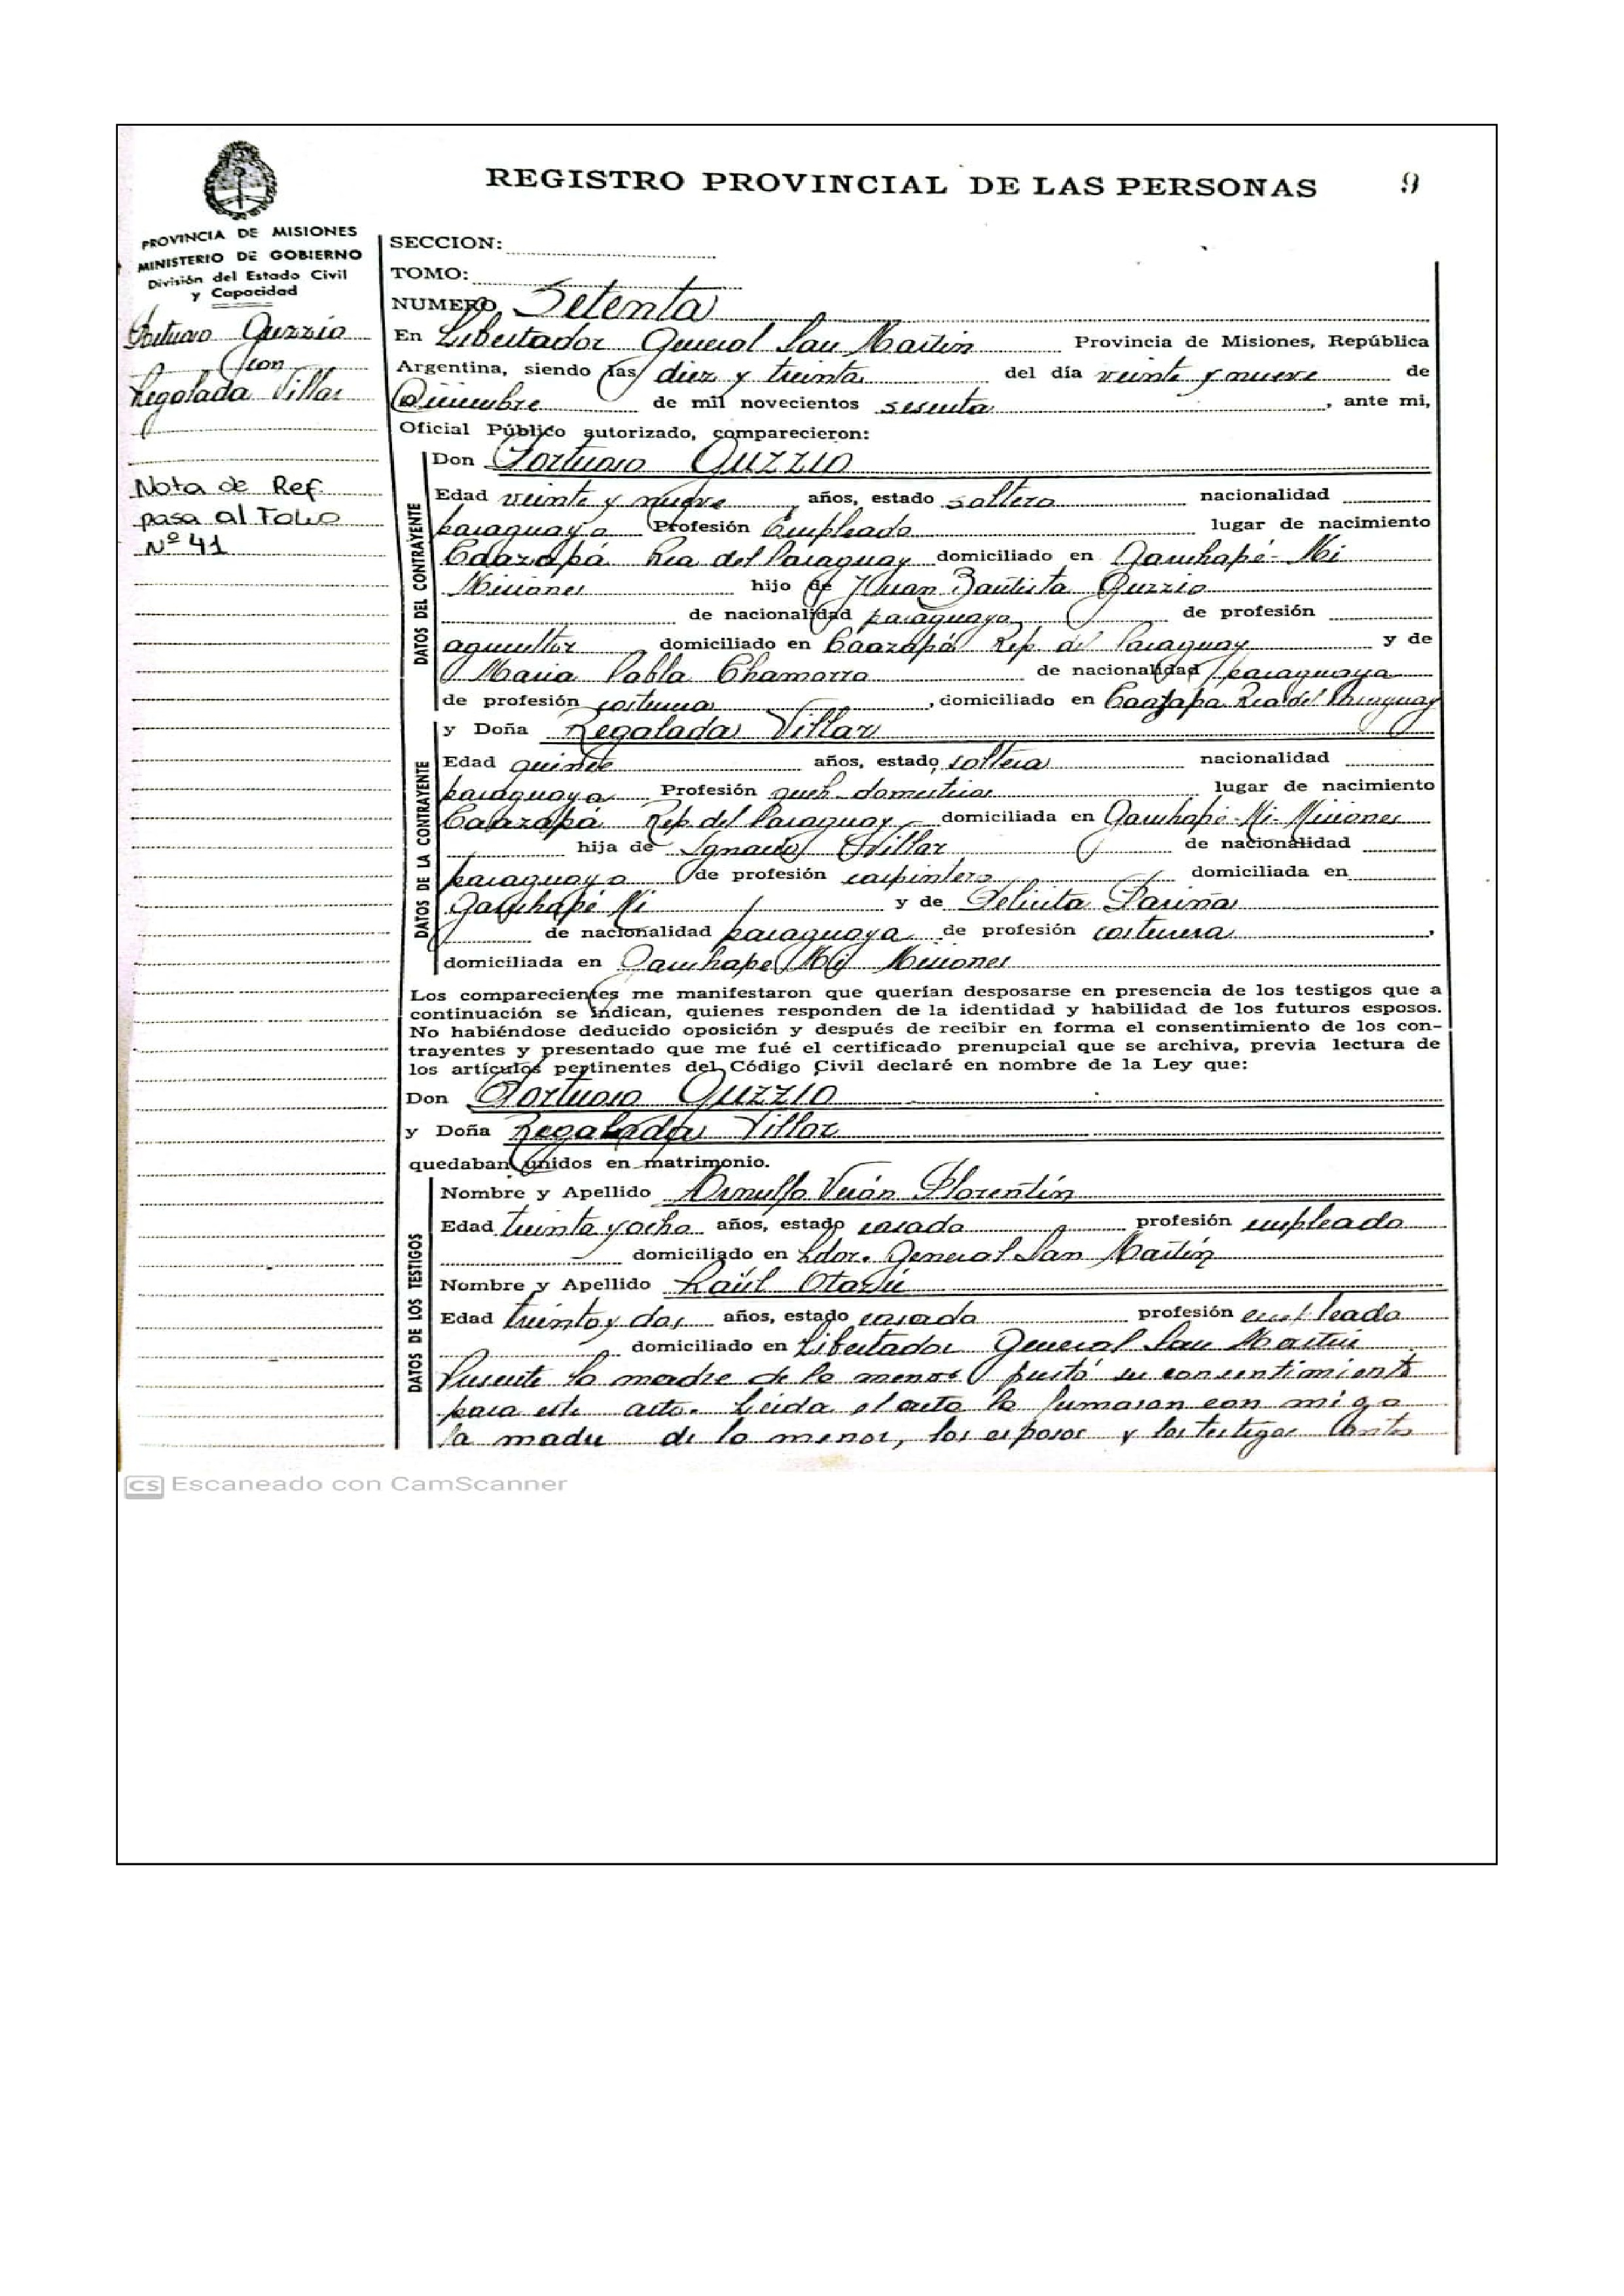 REGISTRO PROVINCIAL DE LAS PERSONAS 9
PROVINCIA DE MISIONES
MINISTERIO DE GOBIERNO
División del Estado Civil
y Capacidad
Guzzio
con
Regalada Villar
Nota de Ref.
pasa al Folio
Nº 41
SECCION:
TOMO:
NUMERO Setenta
En Libertador General San Martin Provincia de Misiones, República
Argentina, siendo las diez y treinta del día veinte y nueve de
Diciembre de mil novecientos sesenta, ante mi,
Oficial Público autorizado, comparecieron:
DATOS DEL CONTRAYENTE
Don Guzzio
Edad veinte y nueve años, estado soltero nacionalidad
paraguaya Profesión Empleado lugar de nacimiento
Caazapá Rca del Paraguay domiciliado en Garuhapé-Mi
Misiones hijo de Juan Bautista Guzzio
de nacionalidad paraguaya de profesión
agricultor domiciliado en Caazapá Rep. del Paraguay y de
Maria Pabla Chamorro de nacionalidad paraguaya
de profesión costurera, domiciliado en Caazapa Rca del Paraguay
DATOS DE LA CONTRAYENTE
y Doña Regalada Villar
Edad quince años, estado soltera nacionalidad
paraguaya Profesión queh. domesticos lugar de nacimiento
Caazapá Rep. del Paraguay domiciliada en Garuhapé-Mi-Misiones
hija de Ignacio Villar de nacionalidad
paraguaya de profesión carpintero domiciliada en
Garuhapé Mi y de Felicita Fariña
de nacionalidad paraguaya de profesión costurera,
domiciliada en Garuhape Mi Misiones
Los comparecientes me manifestaron que querían desposarse en presencia de los testigos que a
continuación se indican, quienes responden de la identidad y habilidad de los futuros esposos.
No habiéndose deducido oposición y después de recibir en forma el consentimiento de los con-
trayentes y presentado que me fué el certificado prenupcial que se archiva, previa lectura de
los artículos pertinentes del Código Civil declaré en nombre de la Ley que:
Don Guzzio
y Doña Regalada Villar
quedaban unidos en matrimonio.
DATOS DE LOS TESTIGOS
Nombre y Apellido Arnulfo Verón Florentín
Edad treinta y ocho años, estado casado profesión empleado
domiciliado en Ldor. General San Martín
Nombre y Apellido Raúl Otazú
Edad treinta y dos años, estado casado profesión empleado
domiciliado en Libertador General San Martin
Presente la madre de la menor prestó su consentimiento
para este acto. Leida el acta la firmaron con migo
la madre de la menor, los esposos y los testigos
CS Escaneado con CamScanner